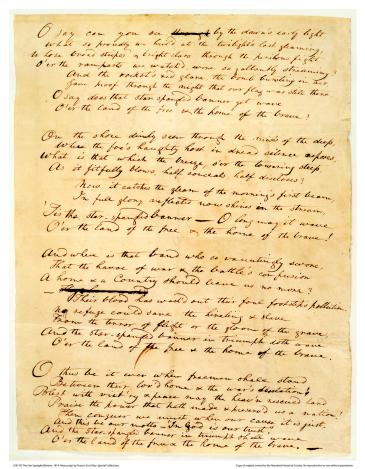 O say can you see by the dawn's early light
What so proudly we hail'd at the twilight's last gleaming,
Whose broad stripes & bright stars through the perilous fight
O'er the ramparts we watch'd, were so gallantly streaming?
And the rocket's red glare, the bomb bursting in air,
Gave proof through the night that our flag was still there
O say does that star-spangled banner yet wave
O'er the land of the free & the home of the brave?
On the shore dimly seen through the mists of the deep,
Where the foe's haughty host in dread silence reposes,
What is that which the breeze, o'er the towering steep,
As it fitfully blows, half conceals, half discloses?
Now it catches the gleam of the morning's first beam,
In full glory reflected now shines in the stream,
'Tis the star-spangled banner – O long may it wave
O'er the land of the free & the home of the brave!
And where is that band who so vauntingly swore,
That the havoc of war & the battle's confusion
A home & a Country should leave us no more?
Their blood has wash'd out their foul footstep's pollution.
No refuge could save the hireling & slave
From the terror of flight or the gloom of the grave,
And the star-spangled banner in triumph doth wave
O'er the land of the free & the home of the brave.
O thus be it ever when freemen shall stand
Between their lov'd home & the war's desolation!
Blest with vict'ry & peace may the heav'n rescued land
Praise the power that hath made & preserv'd us a nation!
Then conquer we must, when our cause it is just,
And this be our motto – In God is our trust,
And the star-spangled banner in triumph shall wave
O'er the land of the free & the home of the brave. –